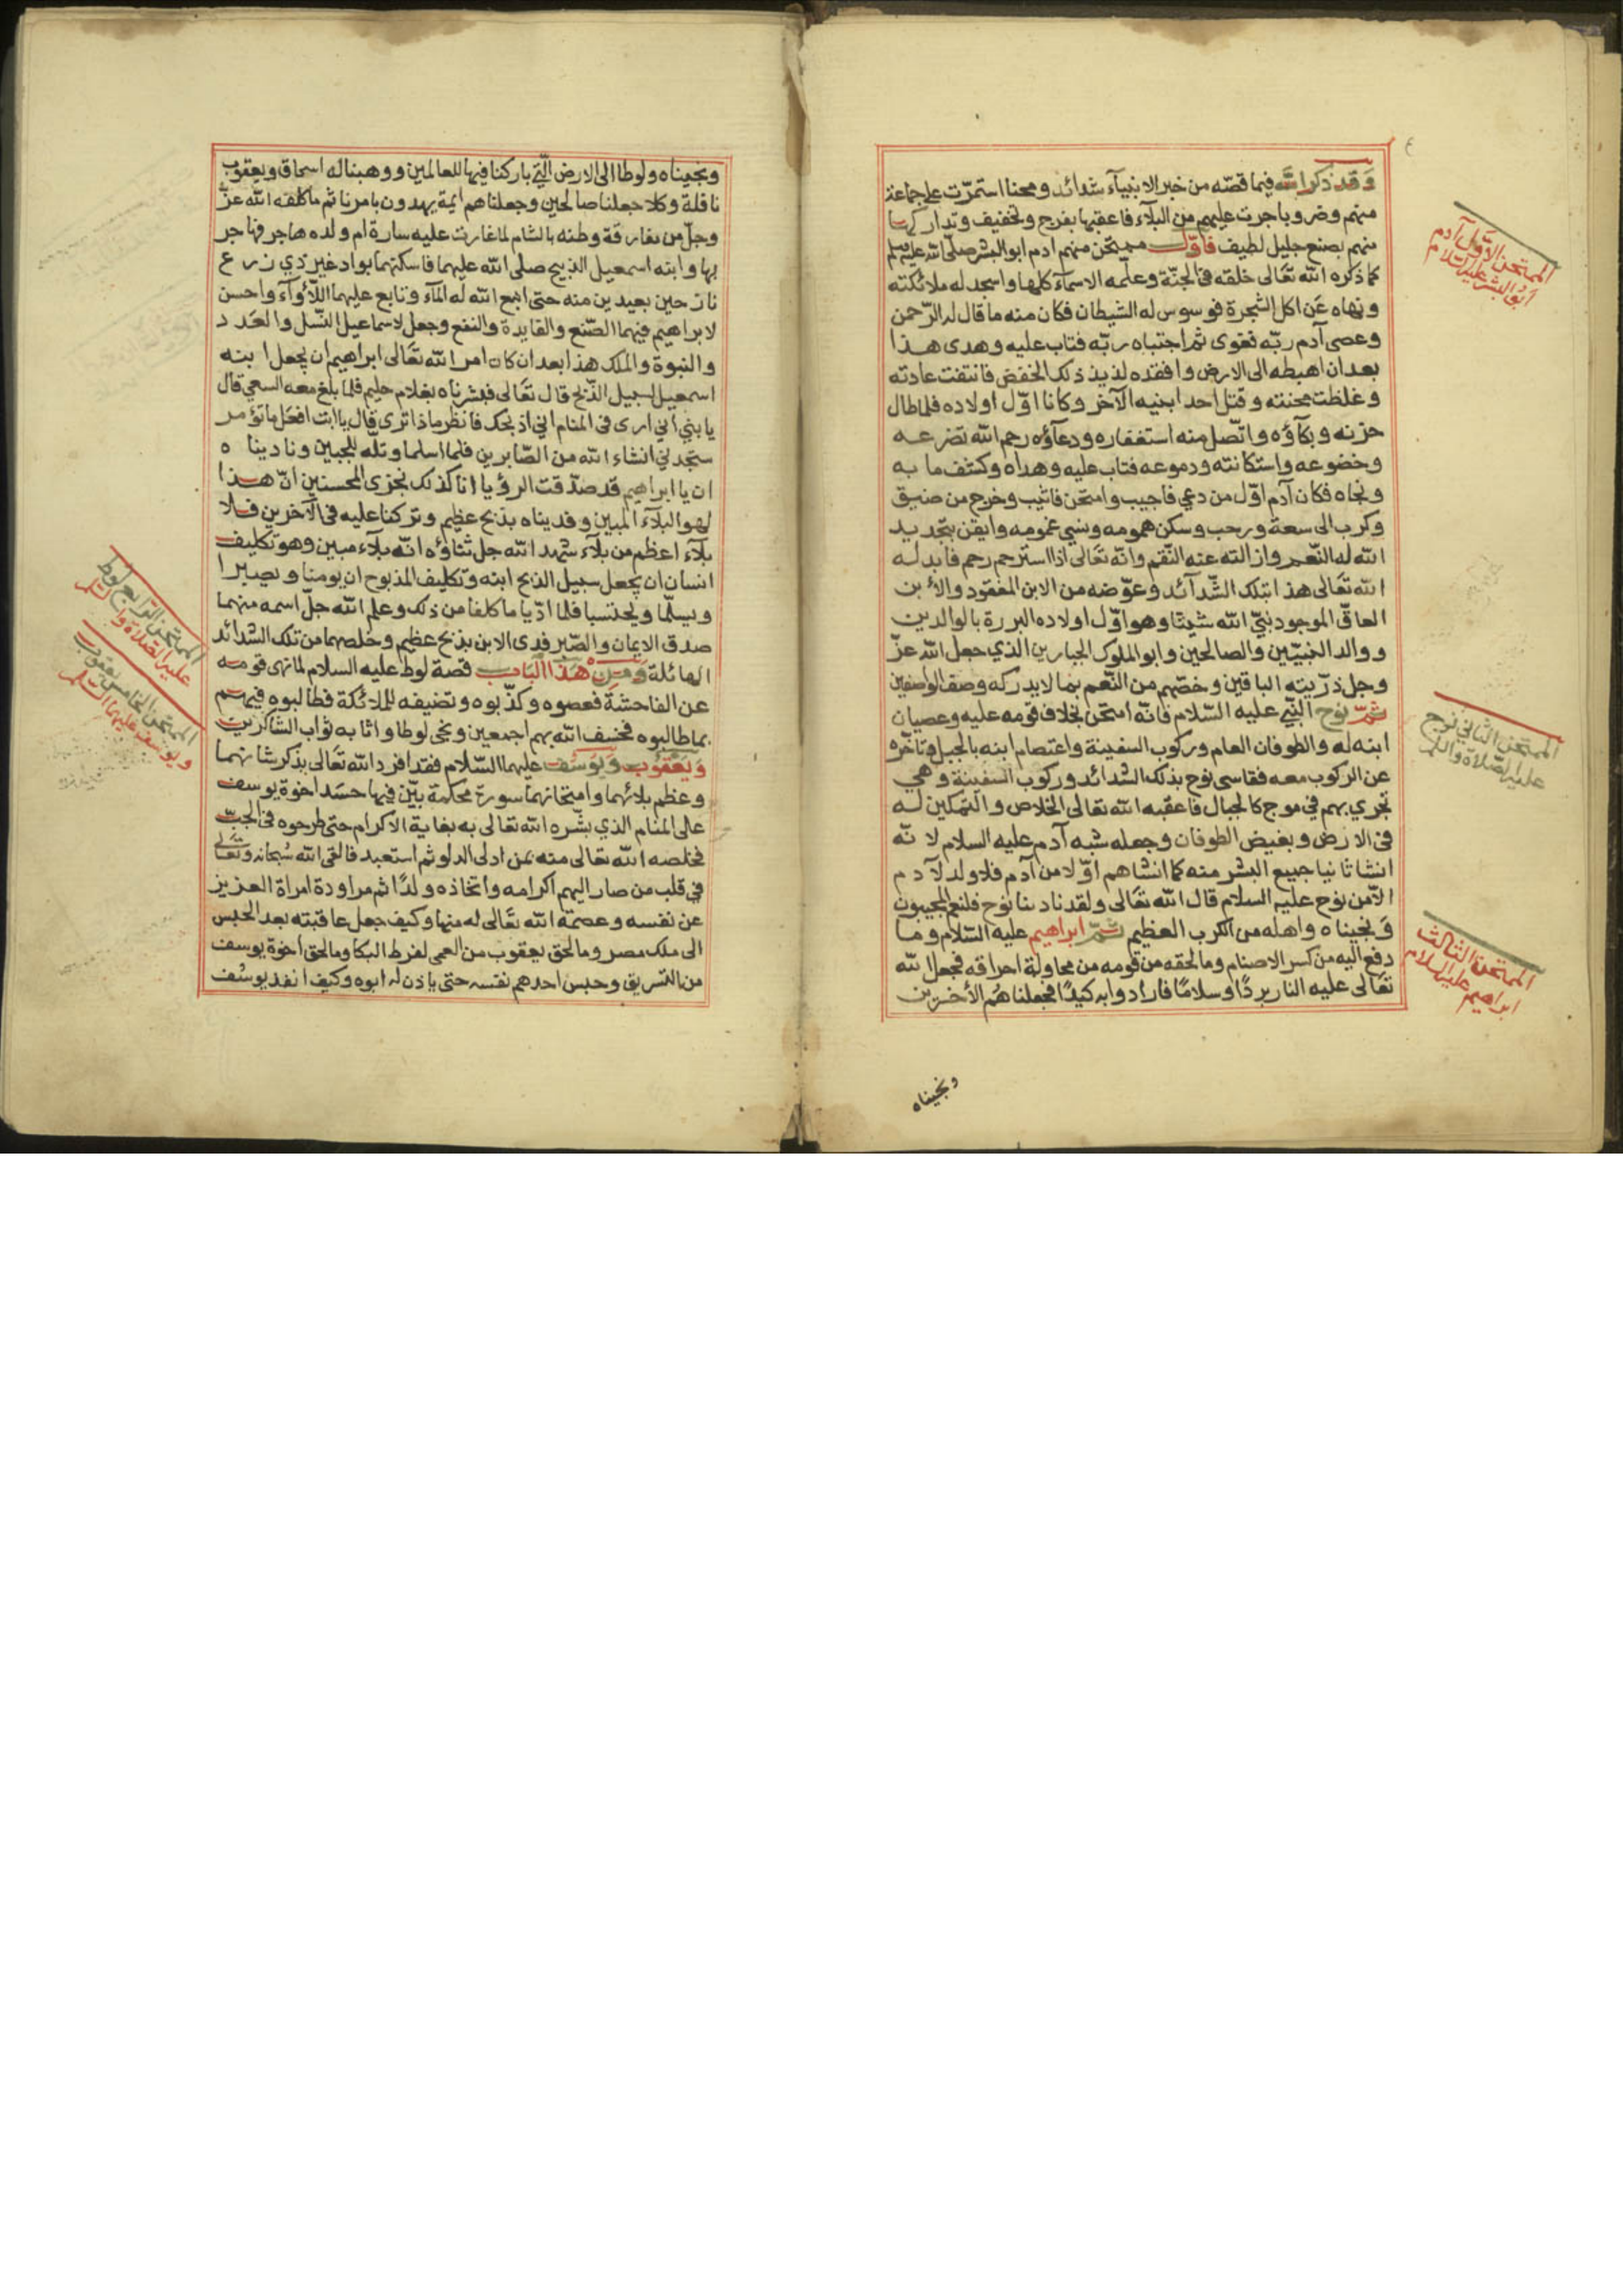 وَقد ذكر الله فيما قصّه من خبر الانبيآء شدائد ومحنا استمرّت على جماعة
منهم وضروبا جرت عليهم من البلآء فاعقبها بفرج وتخفيف وتداركها
منهم بصنع جليل لطيف فاوّل ممتحن منهم ادم ابو البشر صلى الله عليه وسلم
كما ذكره الله تعالى خلقه في الجنّة وعلّمه الاسمآء كلها واسجد له ملائكته
ونهاه عن اكل الشجرة فوسوس له الشيطان فكان منه ما قال له الرّحمن
وعصى آدم ربّه فغوى ثم اجتباه ربّه فتاب عليه وهدى هذا
بعد ان اهبطه الى الارض وافقده لذيذ ذلك الخفض فانتقت عادته
وغلظت محنته وقتل احد ابنيه الآخر وكانا اوّل اولاده فلما طال
حزنه وبكاؤه واتّصل منه استغفاره ودعآؤه رحم الله تضرعه
وخضوعه واستكانته ودموعه فتاب عليه وهداه وكشف ما به
ونجاه فكان آدم اوّل من دعي فاجيب وامتحن فاثيب وخرج من ضيق
وكرب الى سعة ورحب وسكن همومه ونسي غمومه وايقن بتجديد
الله له النّعم وازالته عنه النّقم وانّه تعالى اذا استرحم رحم فابدله
الله تعالى هذا ابتلك الشّدآئد وعوّضه من الابن المفقود والابن
العاقّ الموجود بنيّ الله شيثا وهو اوّل اولاده البررة بالوالدين
ووالد النبيّين والصالحين وابو الملوك الجبارين الذي جعل الله عزّ
وجل ذرّيته الباقين وخصّهم من النّعم بما لا يدركه وصف الواصفين
ثمّ نوح النّبي عليه السّلام فانّه امتحن بخلاف قومه عليه وعصيان
ابنه له والطوفان العام وركوب السفينة واعتصام ابنه بالجبل وتاخّره
عن الركوب معه فقاسى نوح بذلك الشدائد وركوب السّفينة وهي
تجري بهم في موج كالجبال فاعقبه الله تعالى الخلاص والتّمكين له
في الارض وبغيض الطوفان وجعله شبه آدم عليه السلام لانّه
انشا ثانيا جميع البشر منه كما انشاهم اوّلا من آدم فلا ولد لآدم
الاّ من نوح عليه السلام قال الله تعالى ولقد نادينا نوح فلنعم المجيبون
وَنجيناه واهله من الكرب العظيم ثمّ ابراهيم عليه السّلام وما
دفع اليه من كسر الاصنام وما لحقه من قومه من محاولة احراقه فجعل الله
تعالى عليه النار بردًا وسلامًا فارادوا به كيدًا فجعلناهُم الأخسرين
ونجيناه
الممتحن الاوّل آدم
ابو البشر عليه السّلام
الممتحن الثاني نوح
عليه الصّلاة والسلام
الممتحن الثالث
ابراهيم عليه السلام
ونجيناه ولوطا الى الارض الّتي باركنا فيها للعالمين ووهبنا له اسحاق ويعقوب
نافلة وكلا جعلنا صالحين وجعلناهم ايمة يهدون بامرنا ثم ما كلفه الله عزّ
وجلّ من مفارقة وطنه بالشام لما غارت عليه سارة ام ولده هاجر فهاجر
بها وابنه اسمعيل الذبيح صلى الله عليهما فاسكنهما بواد غير ذي زرع
نازحين بعيدين منه حتى انبع الله له المآء وتابع عليهما اللأوآء واحسن
لابراهيم فيهما الصّنع والفايدة والنفع وجعل لاسماعيل النّسل والعَدد
والنبوة والملك هذا بعد ان كان امر الله تعَالى ابراهيم ان يجعل ابنه
اسمعيل لسبيل الذّبح قال تعَالى فبشّرناه بغلام حليم فلما بلغ معه السعي قال
يا بني اني ارى في المنام اني اذبحك فانظر ماذا ترى قال يا ابت افعَل ما تؤمر
ستجدني انشاء الله من الصّابرين فلما اسلما وتلّه للجبين وناديناه
ان يا ابراهيم قد صدّقت الرؤيا انا كذلك نجزى المحسنين انّ هذا
لهو البلآء المبين وفديناه بذبح عظيم وتركنا عليه في الآخرين فلا
بلآء اعظم من بلآء شهد الله جل ثناؤه انّه بلآء مبين وهو تكليف
انسان ان يجعل سبيل الذبح ابنه وتكليف المذبوح ان يومنا ويصبرا
ويسلّما ويحتسبا فلما ادّيا ما كلفا من ذلك وعلم الله جلّ اسمه منهما
صدق الايمان والصّبر فدى الابن بذبح عظيم وخلصهما من تلك الشدائد
الهائلة ومن هَذا الباب قصة لوط عليه السلام لما نهى قومه
عن الفاحشة فعصوه وكذّبوه وتضيفه للملائكة فطالبوه فيهم
بما طالبوه فخسف الله بهم اجمعين ونجى لوطا واثابه ثواب الشّاكرين
وَيعقوب وَيوسف عليهما السّلام فقد افرد الله تعَالى بذكر شانهما
وعظم بلائهما وامتحانهما سورة محكمة بيّن فيها حسَد اخوة يوسف
على المنام الذي بشّره الله تعالى به بغاية الاكرام حتى طرحوه في الجبّ
فخلصه الله تعالى منه بمن ادلى الدلو ثم استعبد فالقى الله سُبحانه وتعَالى
في قلب من صار اليهم اكرامه واتخاذه ولدًا ثم مراودة امراة العزيز
عن نفسه وعصمة الله تعَالى له منها وكيف جعل عاقبته بعد الحبس
الى ملك مصر وما لحق يعقوب من العمى لفرط البكا وما لحق اخوة يوسف
من التسريق وحبس احدهم نفسه حتى ياذن له ابوه وكيف انفد يوسُف
الممتحن الرّابع لوط
عليه الصّلاة والسّلام
الممتحن الخامس يعقوب
ويوسف عليهما السّلام